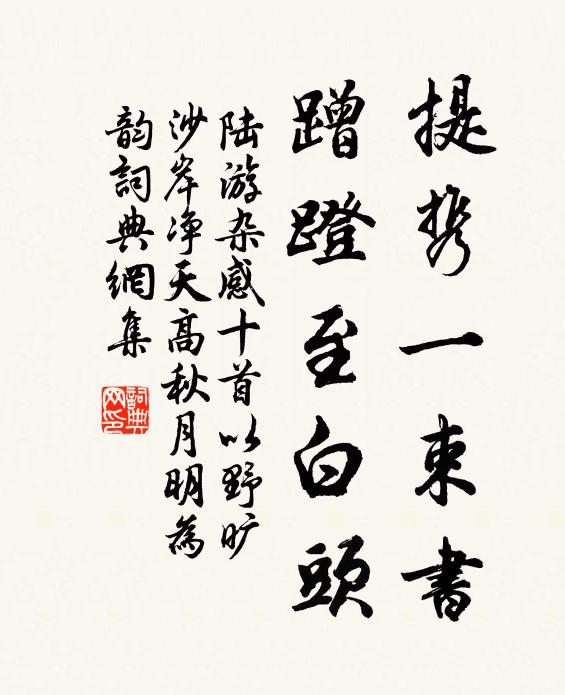 提携一束書
蹭蹬至白頭
陆游杂感十首以野旷
沙岸净天高秋月明為
韵詞典網集
詞典网印